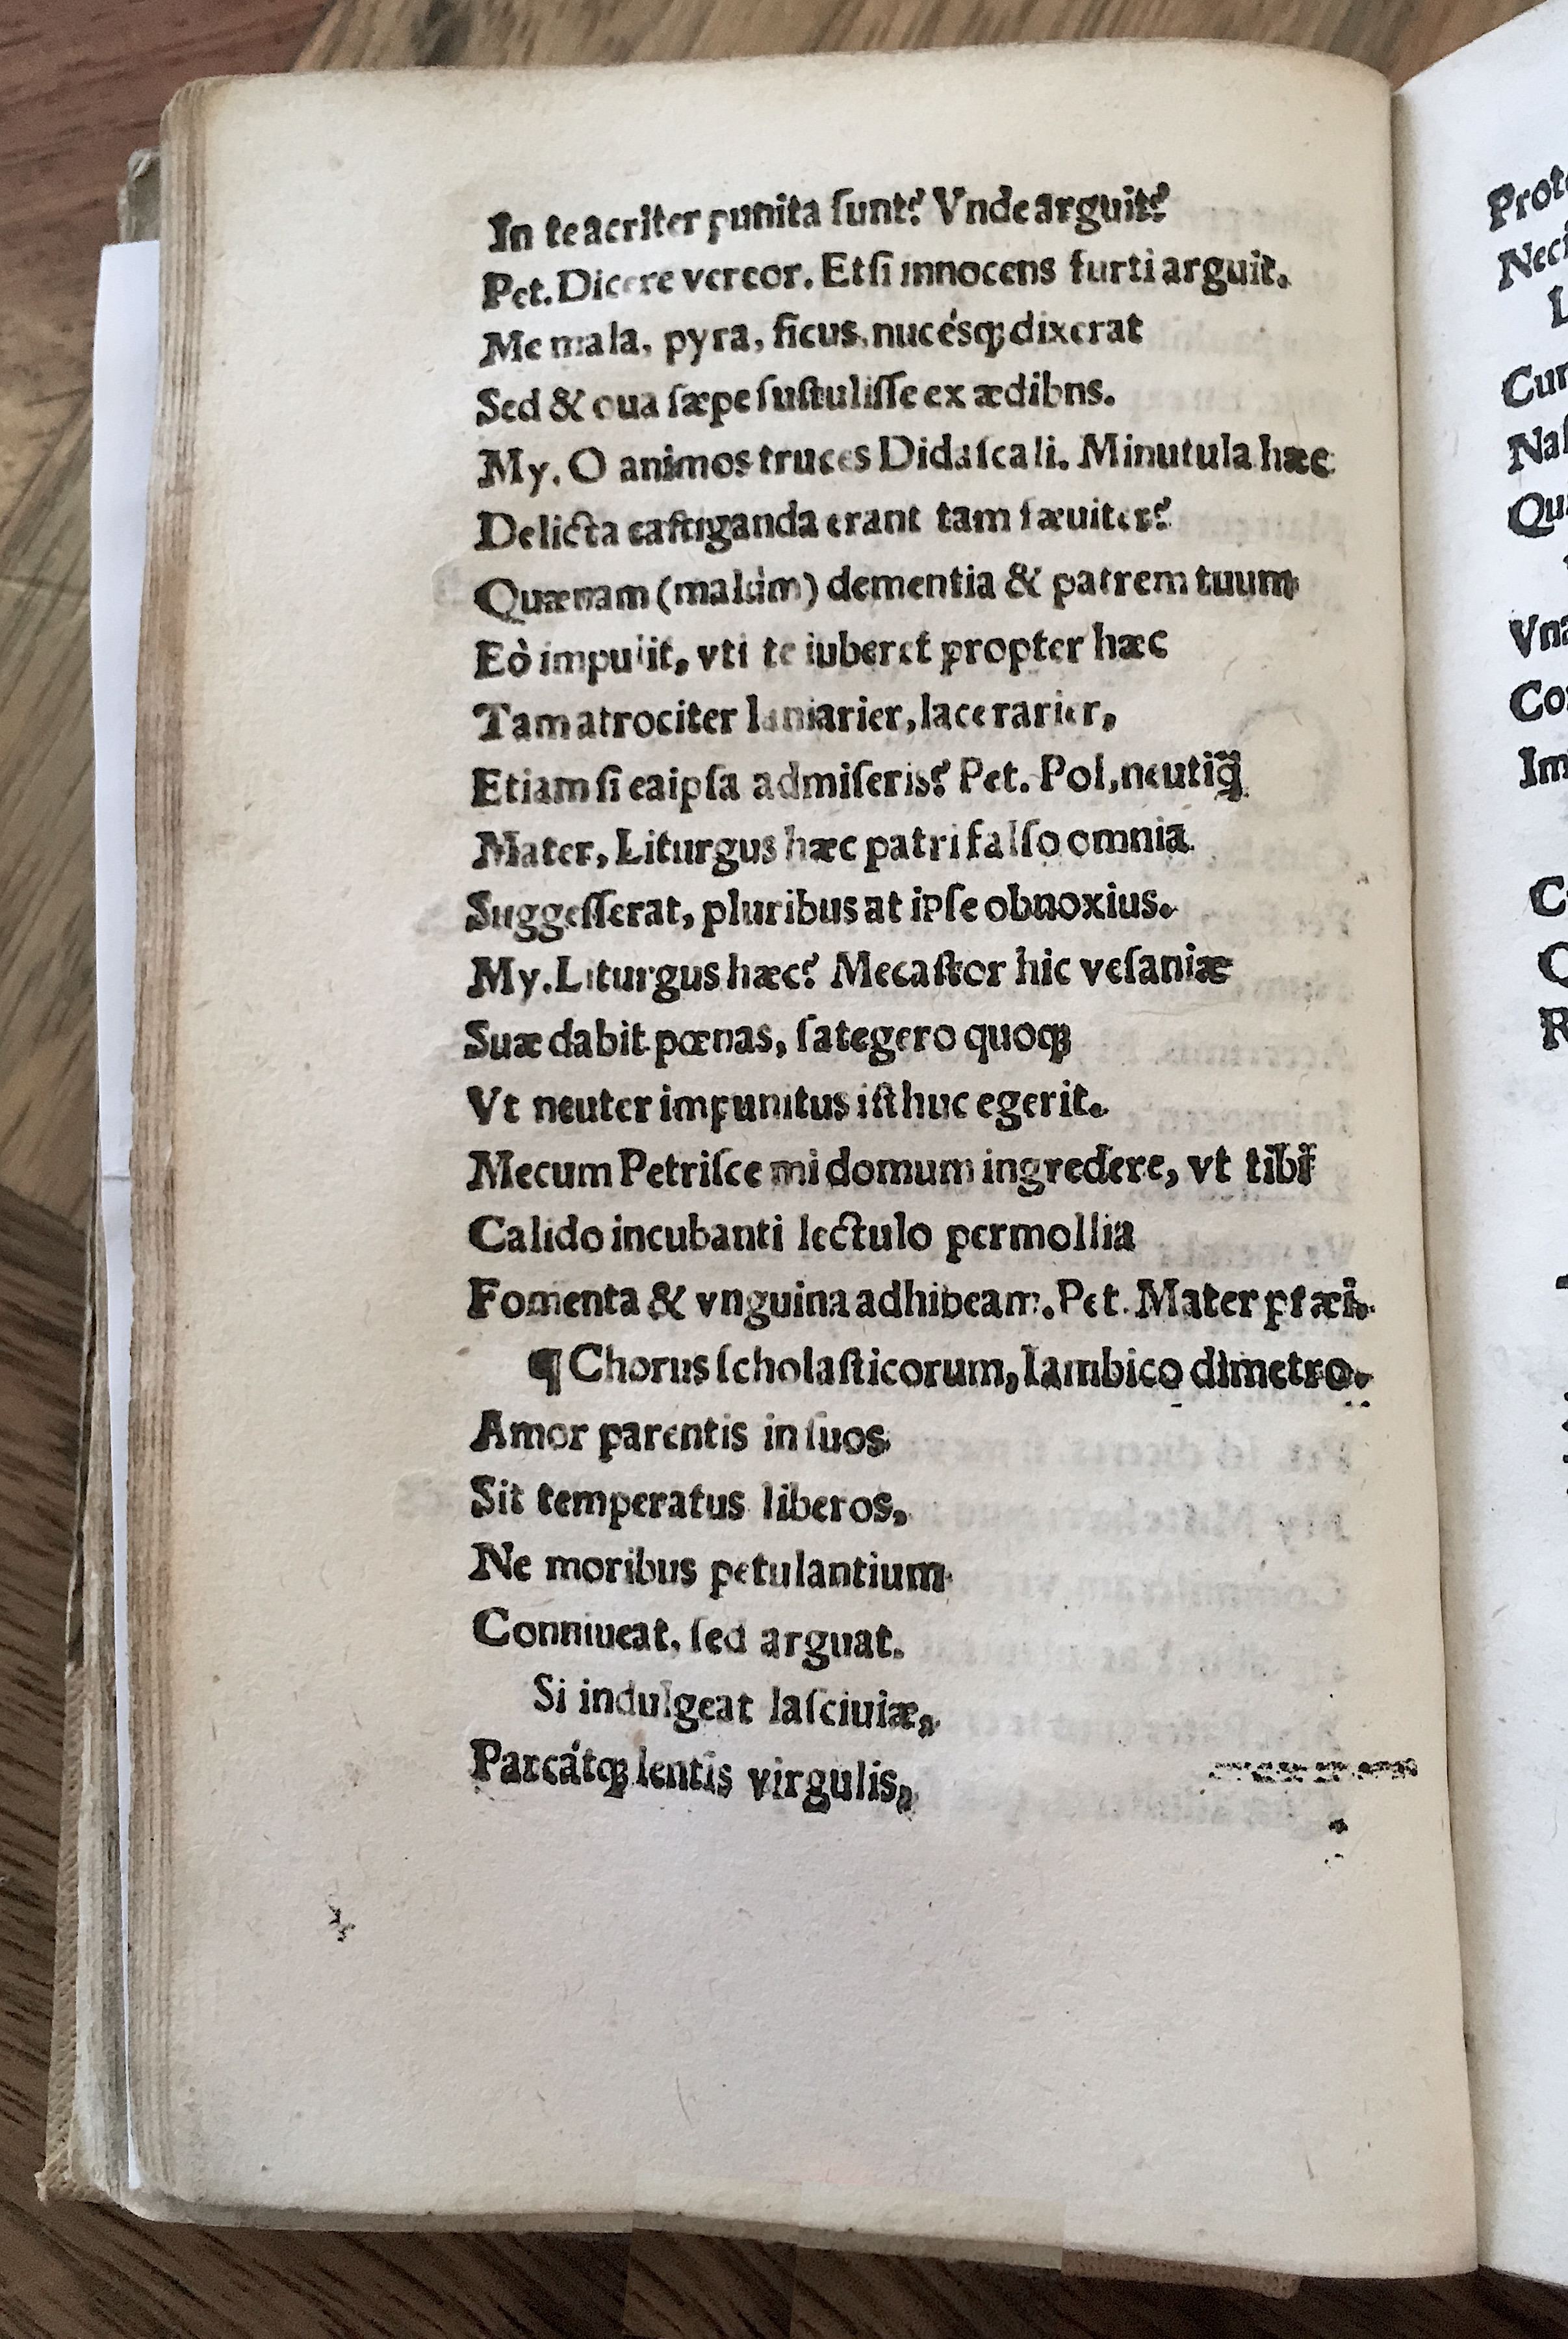 In te acriter punita ſunt? Vnde arguit?
Pet. Dicere vereor. Etſi innocens furti arguit.
Me mala, pyra, ficus, nucésq; dixerat
Sed & oua ſæpe ſuſtuliſſe ex ædibns.
My. O animos truces Didaſcali. Minutula hæc
Delicta caſtiganda erant tam ſæuiter?
Quænam (malùm) dementia & patrem tuum
Eò impulit, vti te iuberet propter hæc
Tam atrociter laniarier, lacerarier,
Etiam ſi ea ipſa admiſeris? Pet. Pol, neutiq̃
Mater, Liturgus hæc patri falſo omnia
Suggeſſerat, pluribus at ipſe obnoxius.
My. Liturgus hæc? Mecaſtor hic veſaniæ
Suæ dabit pœnas, ſategero quoq;
Vt neuter impunitus iſthuc egerit.
Mecum Petriſce mi domum ingredere, vt tibi
Calido incubanti lectulo permollia
Fomenta & vnguina adhibeam. Pet. Mater præi.
¶ Chorus ſcholaſticorum, Iambico dimetro.
Amor parentis in ſuos
Sit temperatus liberos,
Ne moribus petulantium
Conniueat, ſed arguat.
Si indulgeat laſciuiæ,
Parcátq; lentis virgulis,
Prot
Nec
L
Cur
Naſ
Qu
Vna
Co
Im
C
R